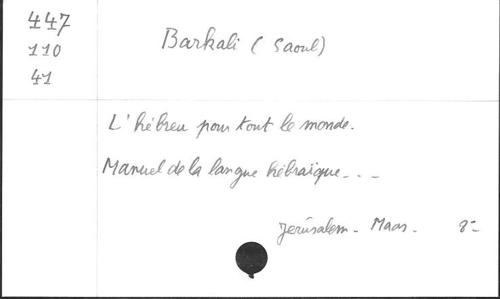 447
110
41
Barkali (Saoul)
L'hébreu pour tout le monde.
Manuel de la langue hébraïque...
Jérusalem - Maas. 8-